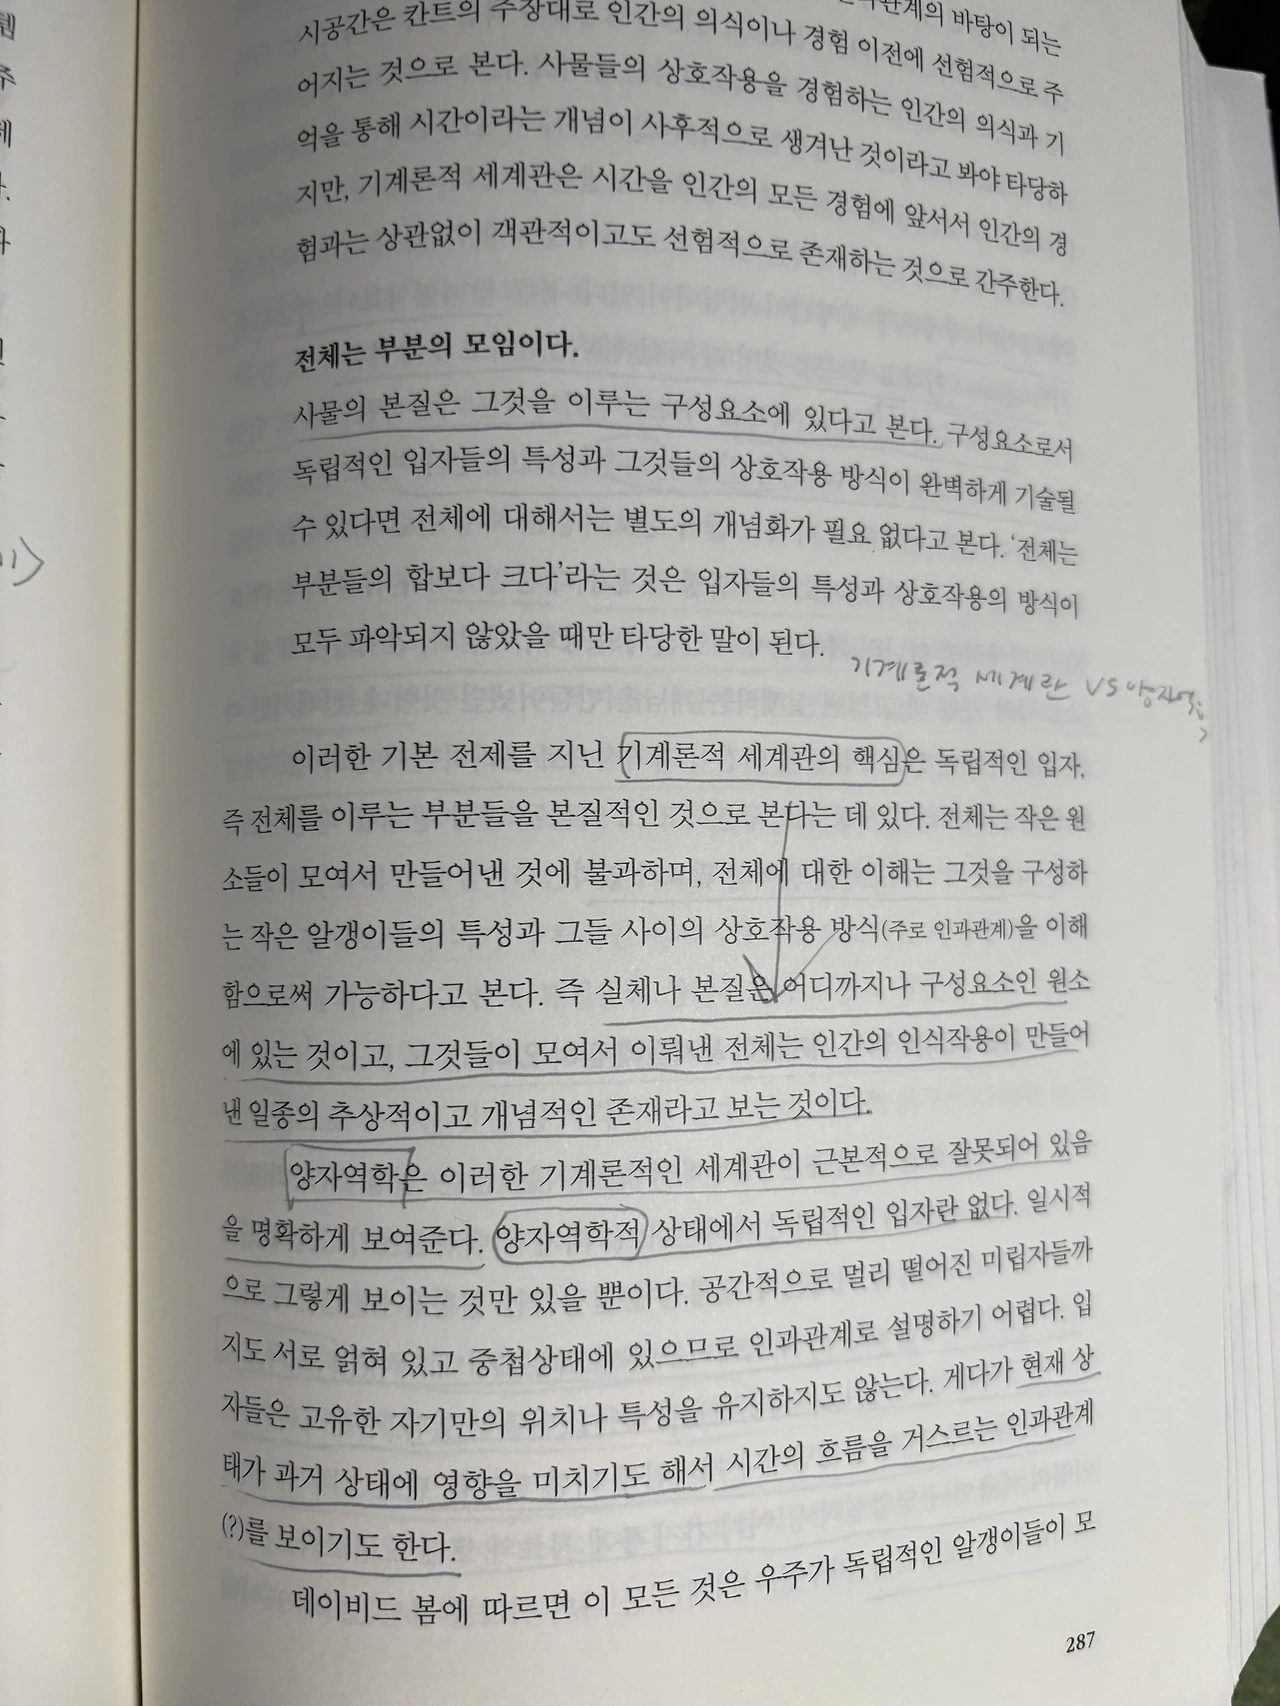 관계의 바탕이 되는
시공간은 칸트의 주장대로 인간의 의식이나 경험 이전에 선험적으로 주
어지는 것으로 본다. 사물들의 상호작용을 경험하는 인간의 의식과 기
억을 통해 시간이라는 개념이 사후적으로 생겨난 것이라고 봐야 타당하
지만, 기계론적 세계관은 시간을 인간의 모든 경험에 앞서서 인간의 경
험과는 상관없이 객관적이고도 선험적으로 존재하는 것으로 간주한다.
전체는 부분의 모임이다.
사물의 본질은 그것을 이루는 구성요소에 있다고 본다. 구성요소로서
독립적인 입자들의 특성과 그것들의 상호작용 방식이 완벽하게 기술될
수 있다면 전체에 대해서는 별도의 개념화가 필요 없다고 본다. ‘전체는
부분들의 합보다 크다’라는 것은 입자들의 특성과 상호작용의 방식이
모두 파악되지 않았을 때만 타당한 말이 된다.
기계론적 세계관 VS 양자역학
이러한 기본 전제를 지닌 기계론적 세계관의 핵심은 독립적인 입자,
즉 전체를 이루는 부분들을 본질적인 것으로 본다는 데 있다. 전체는 작은 원
소들이 모여서 만들어낸 것에 불과하며, 전체에 대한 이해는 그것을 구성하
는 작은 알갱이들의 특성과 그들 사이의 상호작용 방식(주로 인과관계)을 이해
함으로써 가능하다고 본다. 즉 실체나 본질은 어디까지나 구성요소인 원소
에 있는 것이고, 그것들이 모여서 이뤄낸 전체는 인간의 인식작용이 만들어
낸 일종의 추상적이고 개념적인 존재라고 보는 것이다.
양자역학은 이러한 기계론적인 세계관이 근본적으로 잘못되어 있음
을 명확하게 보여준다. 양자역학적 상태에서 독립적인 입자란 없다. 일시적
으로 그렇게 보이는 것만 있을 뿐이다. 공간적으로 멀리 떨어진 미립자들까
지도 서로 얽혀 있고 중첩상태에 있으므로 인과관계로 설명하기 어렵다. 입
자들은 고유한 자기만의 위치나 특성을 유지하지도 않는다. 게다가 현재 상
태가 과거 상태에 영향을 미치기도 해서 시간의 흐름을 거스르는 인과관계
(?)를 보이기도 한다.
데이비드 봄에 따르면 이 모든 것은 우주가 독립적인 알갱이들이 모
287